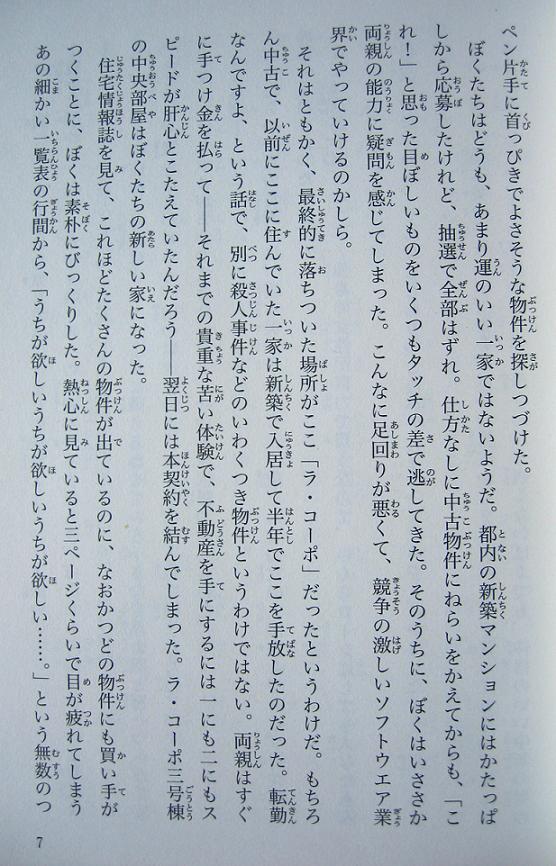 ペン片手に首っぴきでよさそうな物件を探しつづけた。
ぼくたちはどうも、あまり運のいい一家ではないようだ。都内の新築マンションにはかたっぱ
しから応募したけれど、抽選で全部はずれ。仕方なしに中古物件にねらいをかえてからも、「こ
れ!」と思った目ぼしいものをいくつもタッチの差で逃してきた。そのうちに、ぼくはいささか
両親の能力に疑問を感じてしまった。こんなに足回りが悪くて、競争の激しいソフトウエア業
界でやっていけるのかしら。
それはともかく、最終的に落ちついた場所がここ「ラ・コーポ」だったというわけだ。もちろ
ん中古で、以前にここに住んでいた一家は新築で入居して半年でここを手放したのだった。転勤
なんですよ、という話で、別に殺人事件などのいわくつき物件というわけではない。両親はすぐ
に手つけ金を払って――それまでの貴重な苦い体験で、不動産を手にするには一にも二にもス
ピードが肝心とこたえていたんだろう――翌日には本契約を結んでしまった。ラ・コーポ三号棟
の中央部屋はぼくたちの新しい家になった。
住宅情報誌を見て、これほどたくさんの物件が出ているのに、なおかつどの物件にも買い手が
つくことに、ぼくは素朴にびっくりした。熱心に見ていると三ページくらいで目が疲れてしまう
あの細かい一覧表の行間から、「うちが欲しいうちが欲しいうちが欲しい……。」という無数のつ
7